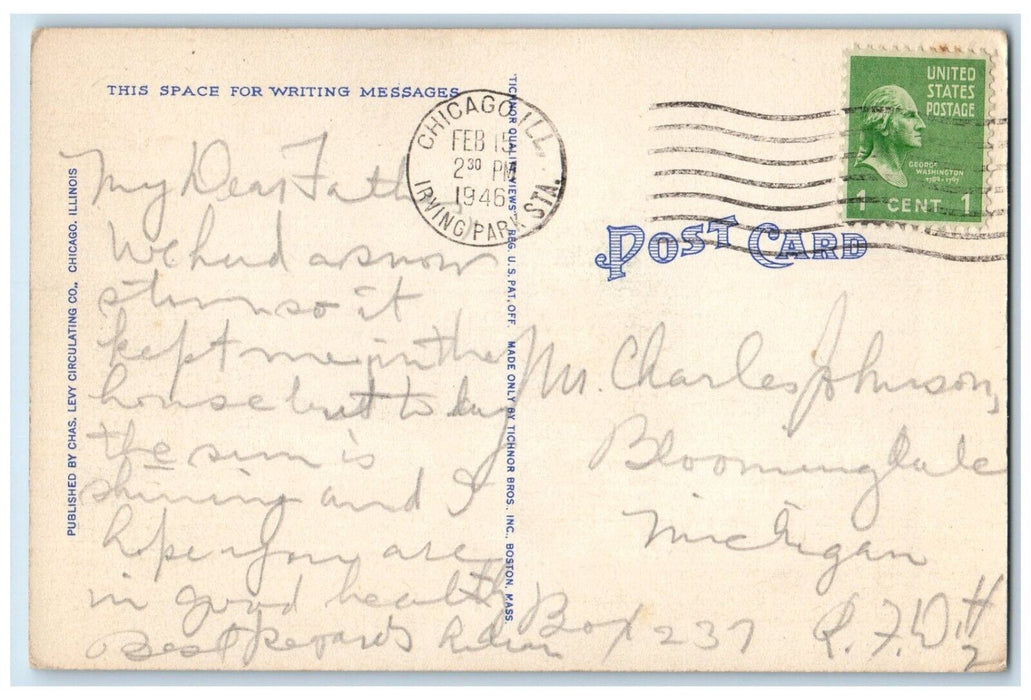 THIS SPACE FOR WRITING MESSAGES
PUBLISHED BY CHAS. LEVY CIRCULATING CO., CHICAGO, ILLINOIS
My Dear Father
We had a snow
storm so it
kept me in the
house but to day
the sun is
shining and I
hope you are
in good health
Best Regards
"TICHNOR QUALITY VIEWS" REG. U.S. PAT. OFF. MADE ONLY BY TICHNOR BROS., INC., BOSTON, MASS.
CHICAGO, ILL.
FEB 15
2 30 PM
1946
IRVING PARK STA.
UNITED
STATES
POSTAGE
GEORGE
WASHINGTON
1789-1797
1 CENT 1
POST CARD
Mr. Charles Johnson,
Bloomingdale
Michigan
Box 237 R.F.D #
2